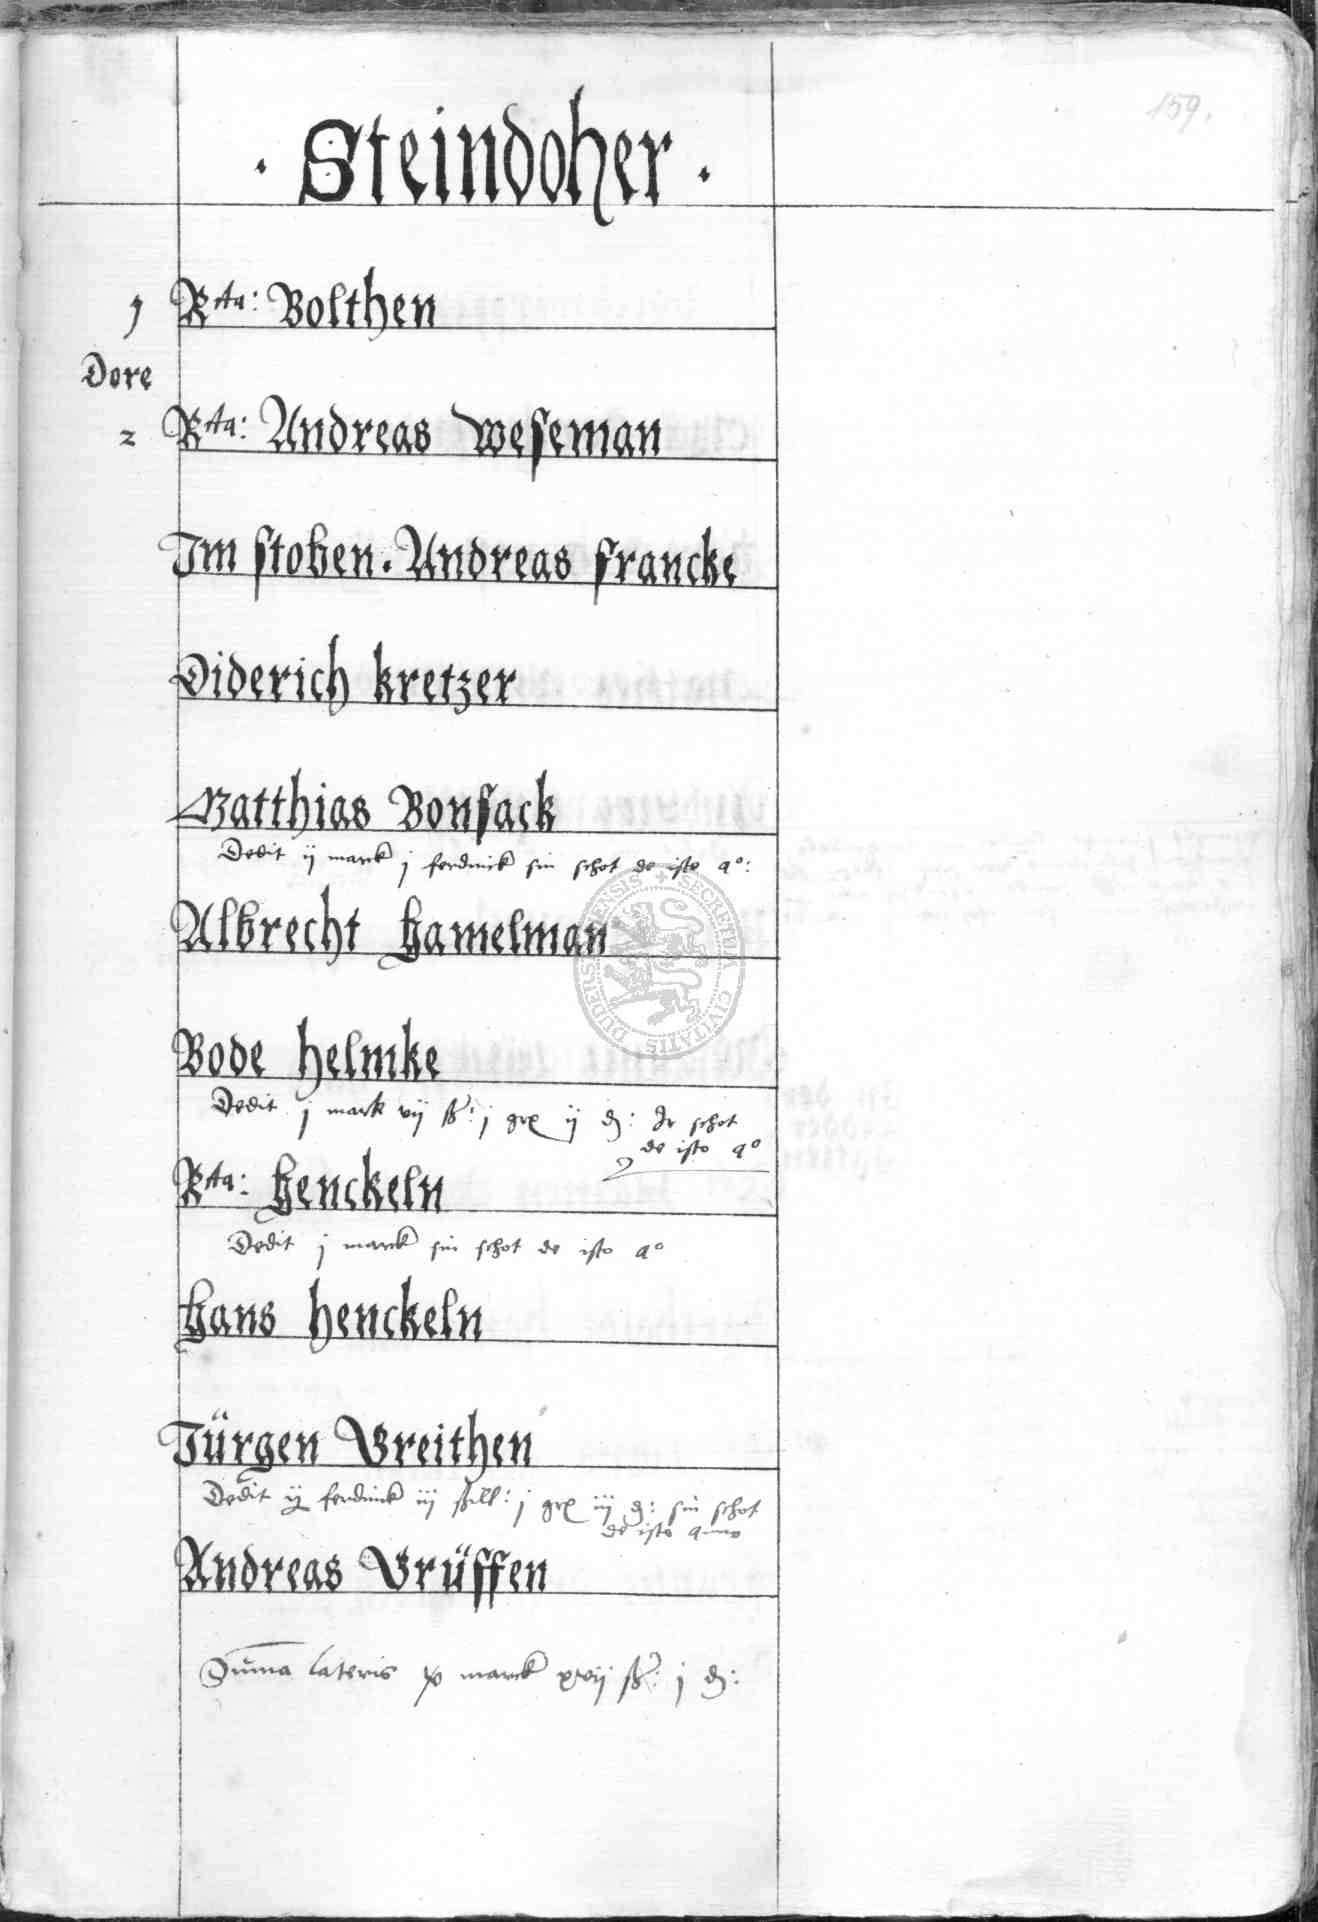 159.
· Steindoher ·
j Rta: Bolthen
Dore
2 Rta: Andreas Weseman
Im stoben. Andreas francke
Diderich kretzer
Matthias Bonsack
Dedit ij marck j ferdinck sin schot de isto ao:
Albrecht Hamelman
Bode helmke
Dedit j mark vij ß: j gr ij d: schot
de isto ao
Rta: Henckeln
Dedit j marck sin schot de isto ao
Hans henckeln
Jürgen Breithen
Dedit ij ferdinck iij schill: j gr iij d: sin schot
de isto anno
Andreas Brüssen
Suma lateris marck xvij ß: j d:
SECRETUM CIVITATIS DUDERSTADENSIS